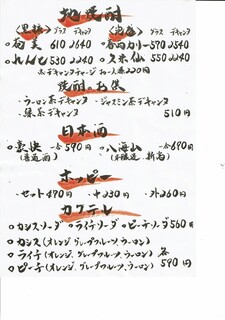 地焼酎
<黒糖> グラス デキャンタ <泡盛> グラス デキャンタ
○奄美 610 2640 ○春雨カリー 570 2540
○れんと 530 2240 ○久米仙 550 2240
焼酎のお供
・ウーロン茶デキャンタ ・ジャスミン茶デキャンタ
・緑茶デキャンタ 510円
日本酒
○豪快 一合 590円 ○八海山 一合 690円
(普通酒) (本醸造、新潟)
ホッピー
・セット 490円 ・中 330円 ・外 260円
カクテル
○カシスソーダ ○ライチソーダ ○ピーチソーダ 560円
○カシス (オレンジ、グレープフルーツ、ウーロン)
○ライチ (オレンジ、グレープフルーツ、ウーロン) 各
○ピーチ (オレンジ、グレープフルーツ、ウーロン) 590円